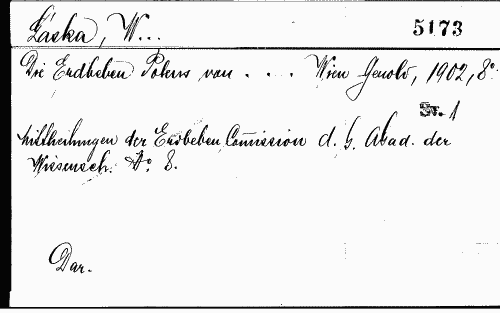 Láska, W...
5173
Die Erdbeben Polens von . . . . Wien Gerold, 1902, 8°
Str. 1
Mittheilungen der Erdbeben Comission d. k. Akad. der
Wissensch. No. 8.
Dar.